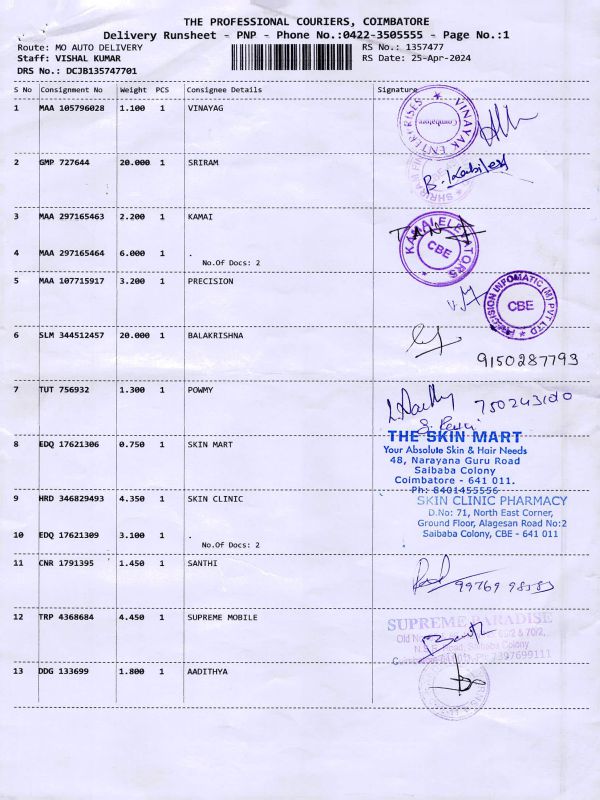 THE PROFESSIONAL COURIERS, COIMBATORE
Delivery Runsheet - PNP - Phone No.:0422-3505555 - Page No.:1
Route: MO AUTO DELIVERY RS No.: 1357477
Staff: VISHAL KUMAR RS Date: 25-Apr-2024
DRS No.: DCJB135747701
S No Consignment No Weight PCS Consignee Details Signature
1 MAA 105796028 1.100 1 VINAYAG
VINAYAK ENTERPRISES
Coimbatore
2 GMP 727644 20.000 1 SRIRAM
3 MAA 297165463 2.200 1 KAMAI
KAMAI ELEVATORS
CBE
4 MAA 297165464 6.000 1 .
No.Of Docs: 2
5 MAA 107715917 3.200 1 PRECISION
PRECISION INFOMATIC (M) PVT LTD
CBE
6 SLM 344512457 20.000 1 BALAKRISHNA
9150287793
7 TUT 756932 1.300 1 POWMY
8 EDQ 17621306 0.750 1 SKIN MART
THE SKIN MART
Your Absolute Skin & Hair Needs
48, Narayana Guru Road
Saibaba Colony
Coimbatore - 641 011.
Ph: 8401455556
9 HRD 346829493 4.350 1 SKIN CLINIC
SKIN CLINIC PHARMACY
D.No: 71, North East Corner,
Ground Floor, Alagesan Road No:2
Saibaba Colony, CBE - 641 011
10 EDQ 17621309 3.100 1 .
No.Of Docs: 2
11 CNR 1791395 1.450 1 SANTHI
12 TRP 4368684 4.450 1 SUPREME MOBILE
SUPREME PARADISE
13 DDG 133699 1.800 1 AADITHYA